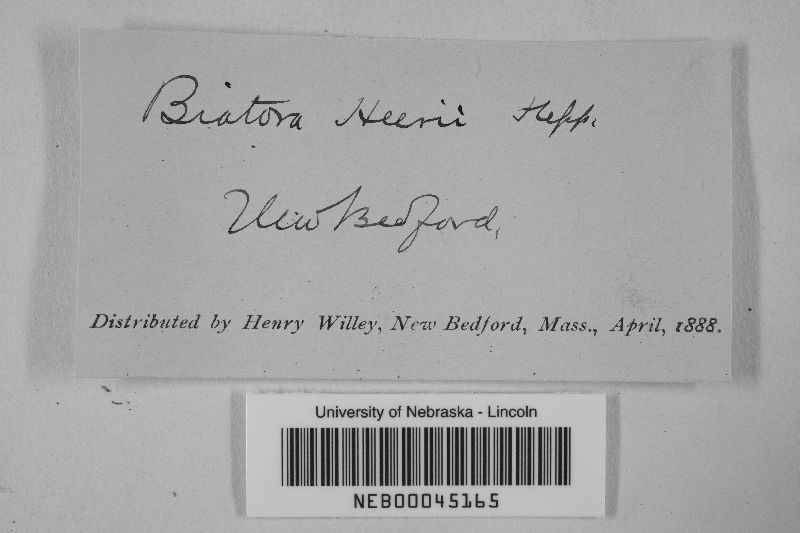 Biatora Heerii Hepp.
New Bedford,
Distributed by Henry Willey, New Bedford, Mass., April, 1888.
University of Nebraska - Lincoln
NEB00045165